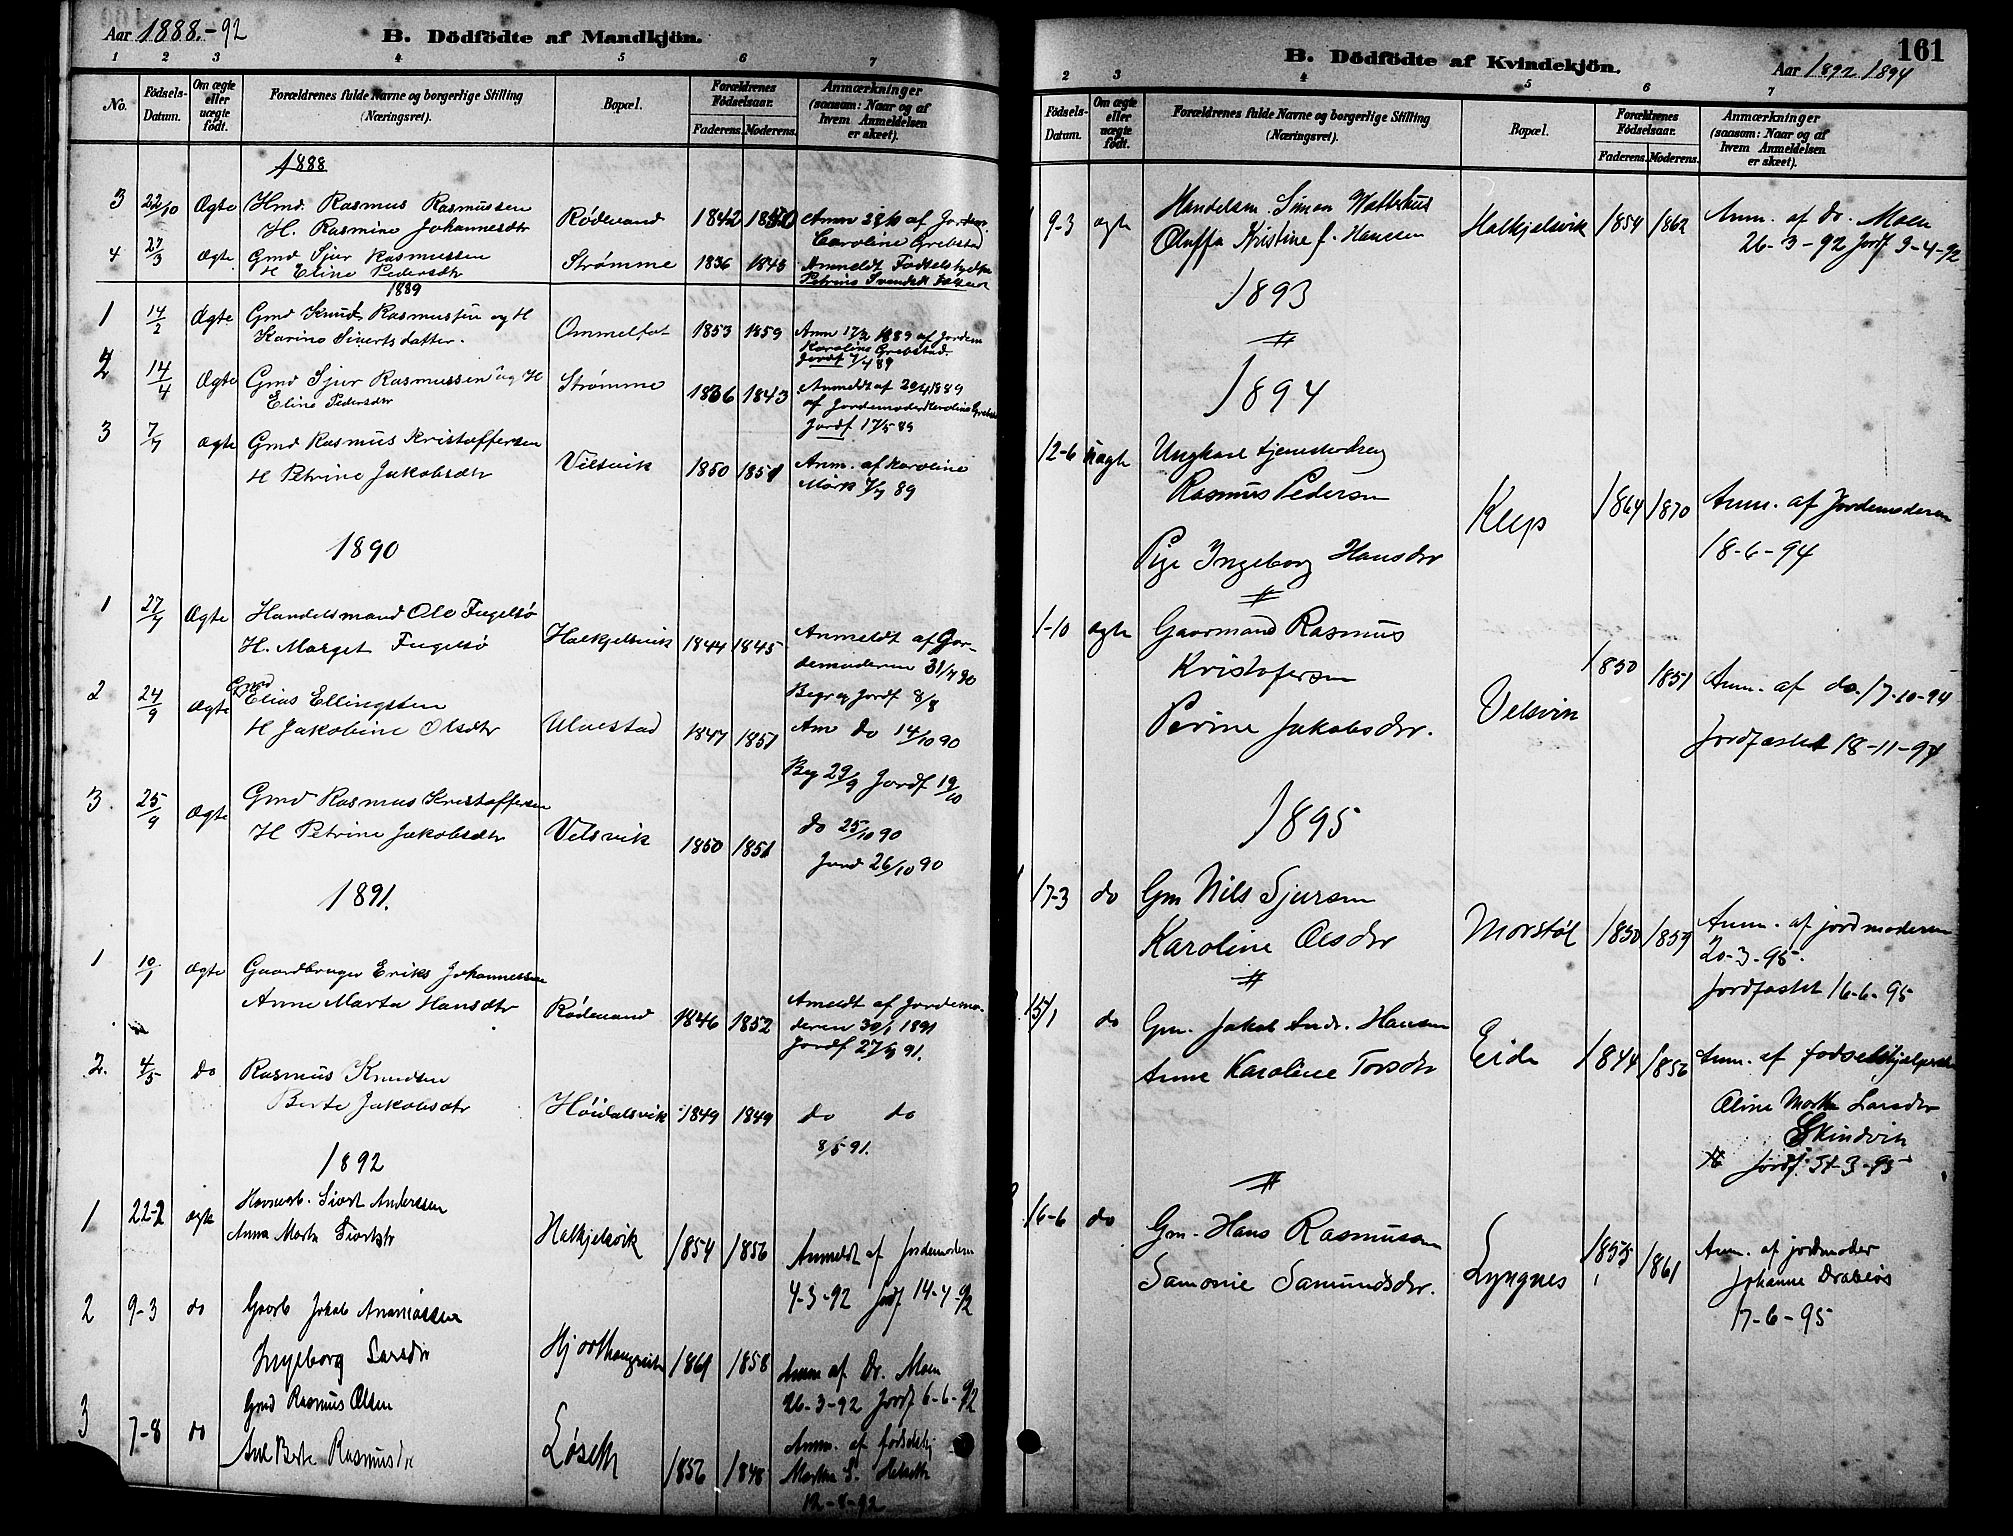 Aar 1888.-92
B. Dödfödte af Mandkjön.
1 2 3 4 5 6 7
No. Födsels-Datum. Om ægte eller uægte födt. Forældrenes fulde Navne og borgerlige Stilling (Næringsvei). Bopæl. Forældrenes Födselsaar. Faderens. Moderens. Anmærkninger (saasom: Naar og af hvem Anmeldelsen er skeet).
1888
3 22/10 Ægte Hmd. Rasmus Rasmussen
H. Rasmine Johannesdtr Rødesand 1842 1850 Anm af Jordm.
Caroline Grebstad
4 27/3 Ægte Gmd Sjur Rasmussen
H Eline Pedersdtr Strømme 1836 1843 Anmeldt
Petrine
1889
1 14/2 Ægte Gmd Knut Rasmussen og H
Karine Sivertsdatter. 1853 1859 Anm 17/2 1889 af Jordem
Karoline Grebstad.
Jordf 7/4 89
2 14/4 Ægte Gmd Sjur Rasmussen og H
Eline Pedersdtr Strømme 1836 1843 Anmeldt af 20/4 1889
af Jordemoder Karoline Grebst
Jordf 17/5 89
3 7/7 ægte Gmd Rasmus Kristoffersen
H Petrine Jakobsdtr Velsvik 1850 1851 Anm. af Karoline
Mork 7/7 89
1890
1 27/7 Ægte Handelsmand Ole Fugelsø
H. Marget Fugelsø Halkjelsvik 1844 1845 Anmeldt af Jor-
demoderen 31/7 90
Begr og Jordf 8/8
2 24/9 Ægte Gmd Elias Ellingsen
H Jakobine Olsdtr Ulvestad 1847 1851 Anm do 14/10 90
Beg 29/9 Jordf 19/10
3 25/9 Ægte Gmd Rasmus Kristoffersen
H Petrine Jakobsdtr Velsvik 1850 1851 do 25/10 90
Jord 26/10 90
1891.
1 10/1 ægte Gaardbruger Eriks Johannessen
Anne Marta Hansdtr Rødesand 1846 1852 Anmeldt af Jordemo-
deren 30/1 1891
Jordf 27/ 91.
2. 4/5 do Rasmus Knudsen
Berte Jakobsdtr Høidalsvik 1849 1849 do do
8/5 91.
1892
1 22-2 ægte Sivert Anderssen
Anna Marta Halkjelsvik 1854 1856 Anmeldt af Jordemoderen
4-3-92 Jordf 14-4-92
2 9-3 do Gaarb Jakob Ananiassen
Ingeborg Larsdr 1861 1858 Anm af Dr. Moen
26-3-92 Jordf 6-6-92
3 7-8 do Gmd Rasmus Olsen
Berte Rasmusdr Løseth 1856 1848 Anm. af fødselshj
Martha S. Helseth
12-8-92
161
B. Dödfödte af Kvindekjön.
Aar 1892 1894
2 3 4 5 6 7
Födsels-Datum. Om ægte eller uægte födt. Forældrenes fulde Navne og borgerlige Stilling (Næringsvei). Bopæl. Forældrenes Födselsaar. Faderens. Moderens. Anmærkninger (saasom: Naar og af hvem Anmeldelsen er skeet).
9-3 ægte Handelsm. Simon Watterhus
Oluffa Kristine f. Hanssen Halkjelsvik 1854 1862 Anm. af Dr. Moen
26-3-92 Jordf 9-4-92
1893
1894
12-6 uægte Ungkarl tjenestedreng
Rasmus Pedersen
Pige Ingeborg Hansdr Klep 1864 1870 Anm. af Jordemoderen
18-6-94
1-10 ægte Gaarmand Rasmus
Kristofersen
Perine Jakobsdr. Velsvik 1850 1851 Anm. af do. 17-10-94
Jordfæstet 18-11-94
1895
17-3 do Gm Nils Sjursen
Karoline Olsdr Morstøl 1850 1859 Anm. af jordmoderen
20-3-95.
Jordfæstet 16-6-95
15/1 do Gm. Jakob Andr. Hansen
Anne Karoline Torsdr Eide 1844 1856 Anm. af fodselshjelperske
Oline Larsdr
Skindvik
Jordf. 31-3-95
16-6 do Gm. Hans Rasmussen
Samonie Samundsdr. Lyngnes 1855 1861 Anm. af jordmoder
Johanne Drabløs
17-6-95